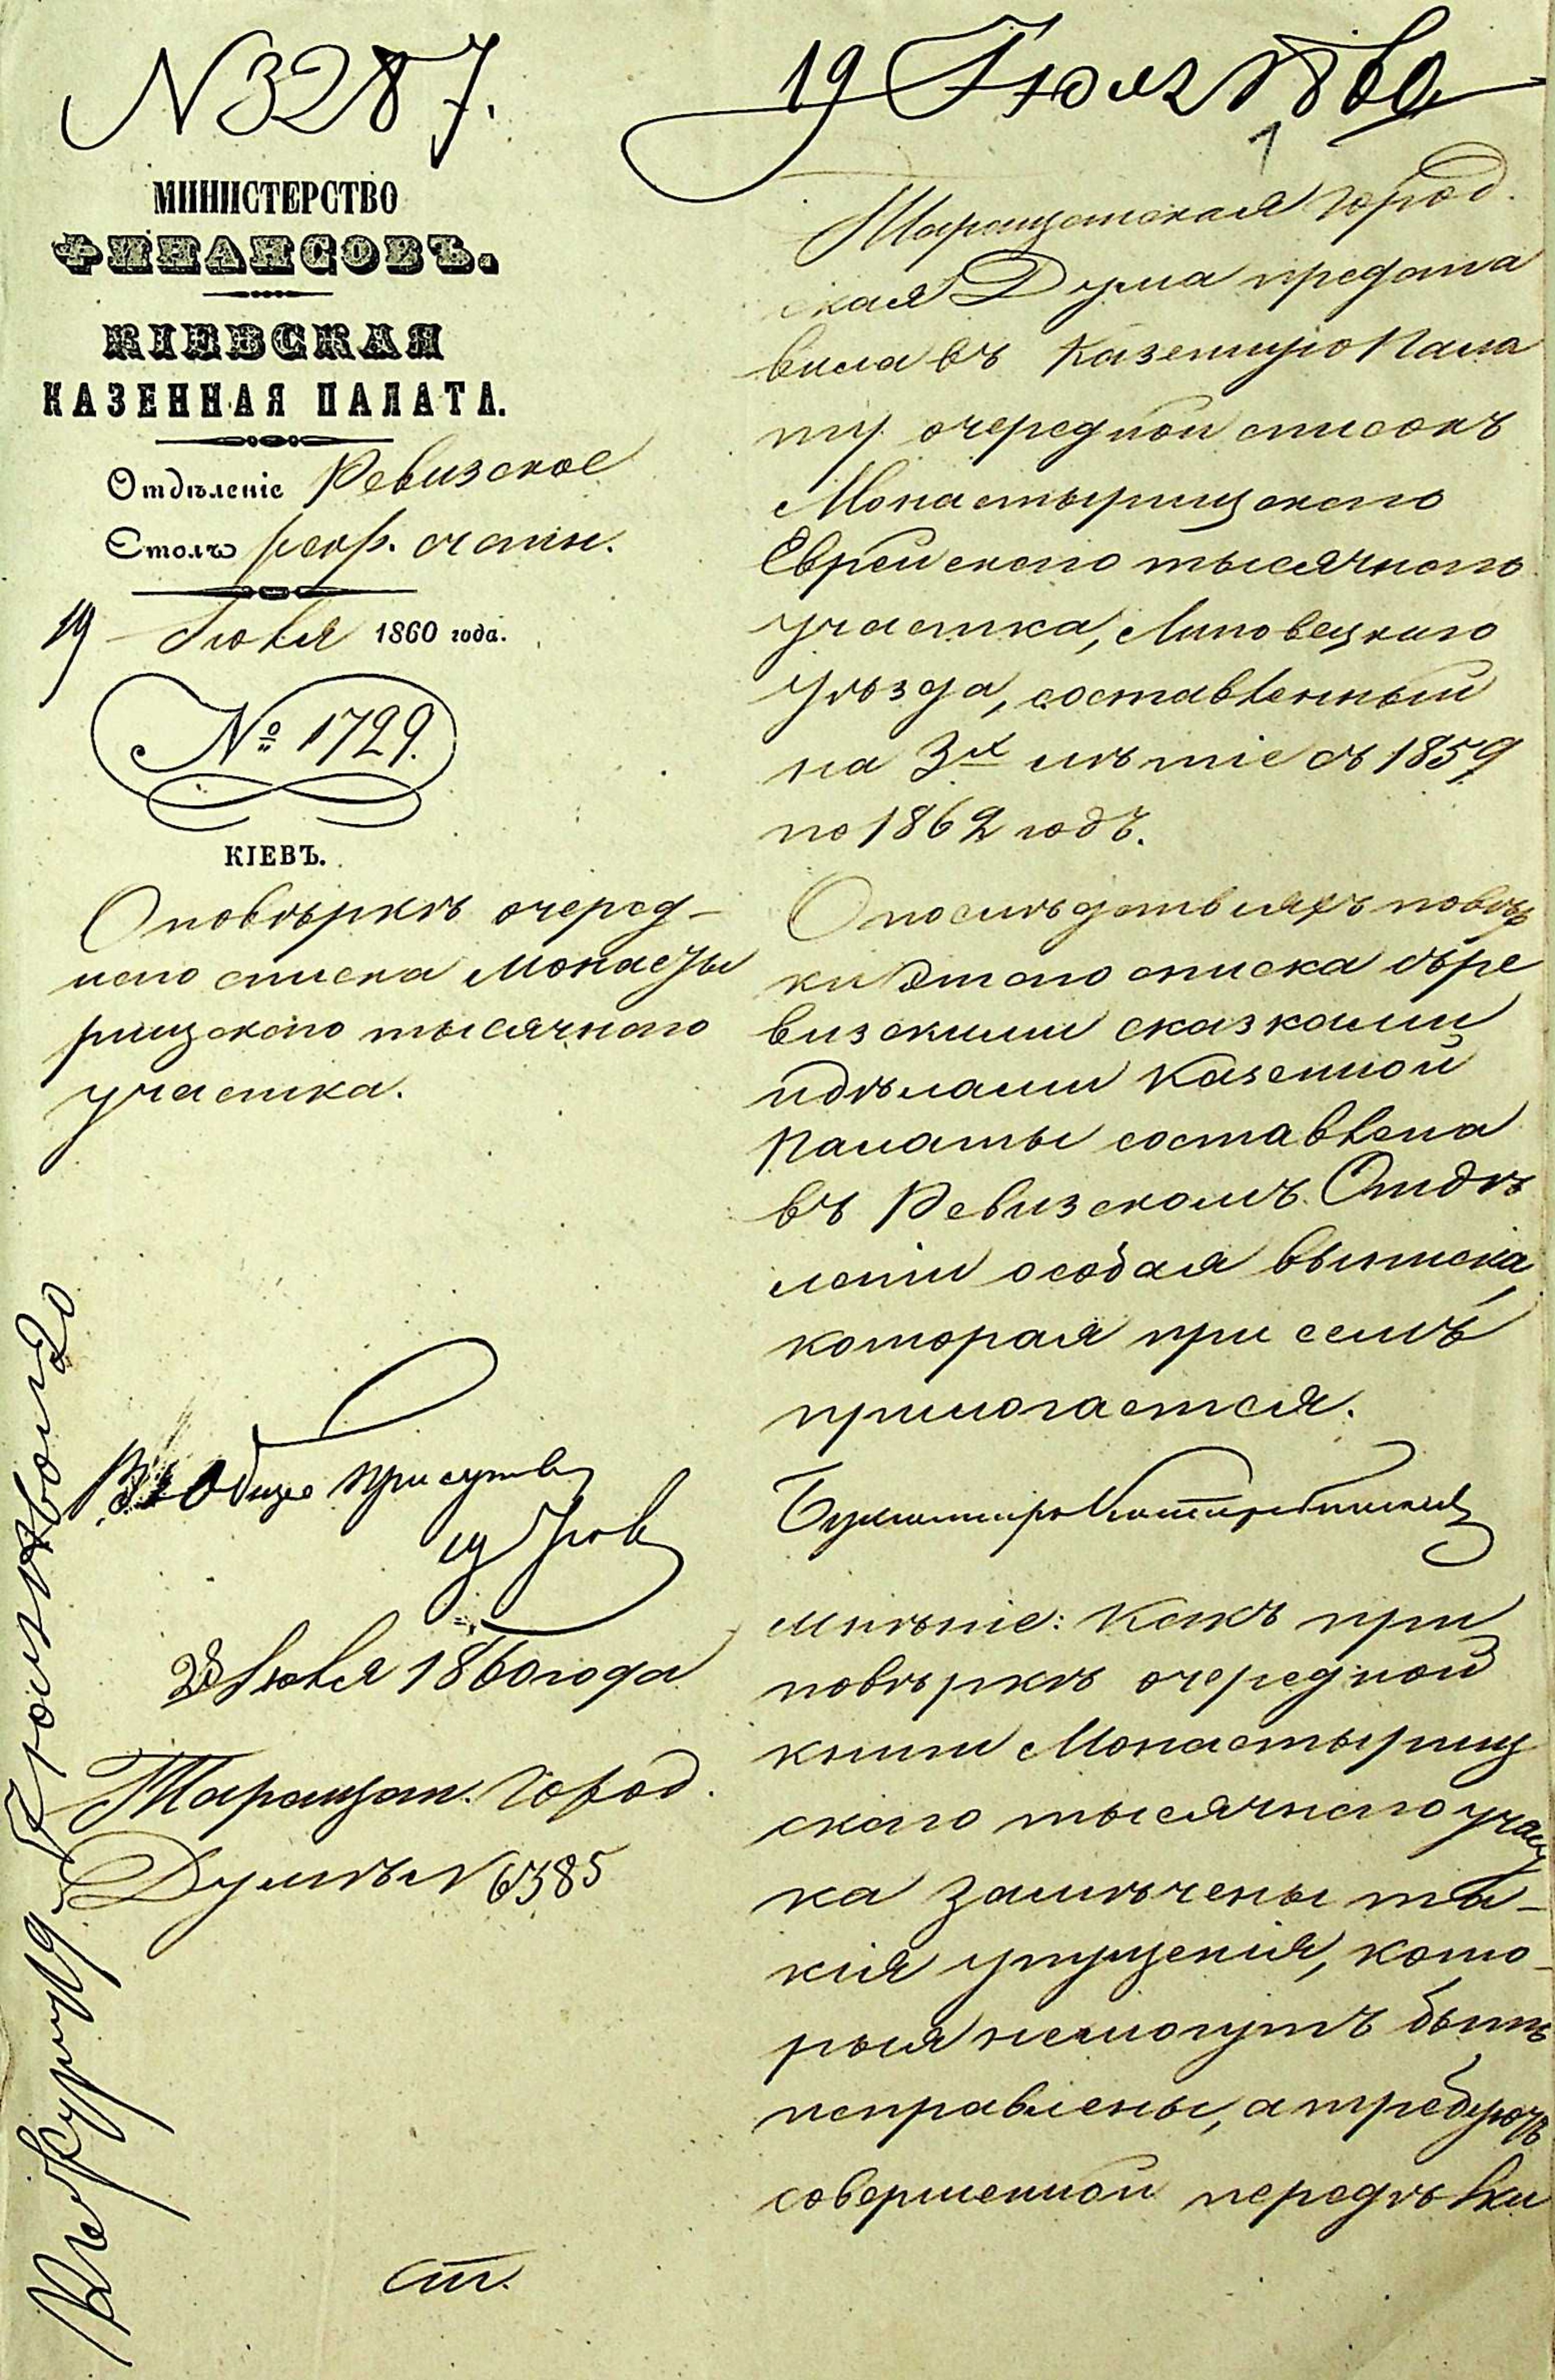 N 3287.
19 Іюля 1860
МИНИСТЕРСТВО
ФИНАНСОВЪ.
КІЕВСКАЯ
КАЗЕННАЯ ПАЛАТА.
Отдѣленіе Ревизское
Столъ рекр. счетн.
19 Іюля 1860 года.
№ 1729.
КІЕВЪ.
О повѣркѣ очеред-
наго списка Монасты
рищскаго тысячнаго
участка.
Въ Общее Присутств
28 Іюля 1860 года
Таращан. Город.
Думѣ N 6385
ст.
Таращатская Город.
ская Дума предста
вила въ Казенную Пала
ту очередной списокъ
Монастырищскаго
Еврейскаго тысячнаго
участка, Липовецкаго
уѣзда, составленный
на 3х лѣтіе съ 1859
по 1862 годъ.
О послѣдствіяхъ повѣр
ки этаго списка съ ре
визскими сказками
и дѣлами Казенной
Палаты составлена
въ Ревизскомъ Отдѣ
леніи особая выписка,
которая при семъ
прилагается.
Бухгалтеръ
Мнѣніе: Какъ при
повѣркѣ очередной
книги Монастырищ
скаго тысячнаго участ
ка замѣчены та-
кія упущенія, кото-
рыя немогутъ быть
исправлены, а требуютъ
совершенной передѣлки